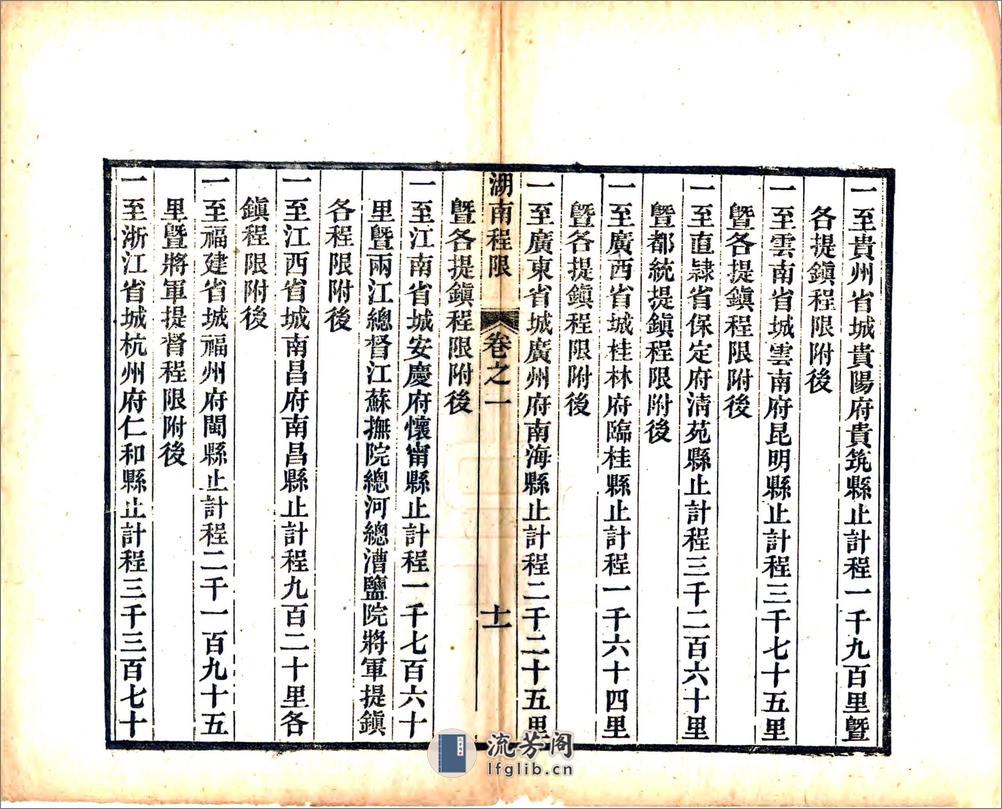 一至貴州省城貴陽府貴筑縣止計程一千九百里暨
各提鎭程限附後
一至雲南省城雲南府昆明縣止計程三千七十五里
暨各提鎭程限附後
一至直隷省保定府淸苑縣止計程三千二百六十里
暨都統提鎭程限附後
一至廣西省城桂林府臨桂縣止計程一千六十四里
暨各提鎭程限附後
一至廣東省城廣州府南海縣止計程二千二十五里
湖南程限 卷之一 十一
暨各提鎭程限附後
一至江南省城安慶府懷甯縣止計程一千七百六十
里暨兩江總督江蘇撫院總河總漕鹽院將軍提鎭
各程限附後
一至江西省城南昌府南昌縣止計程九百二十里各
鎭程限附後
一至福建省城福州府閩縣止計程二千一百九十五
里暨將軍提督程限附後
一至浙江省城杭州府仁和縣止計程三千三百七十
流芳阁
lfglib.cn